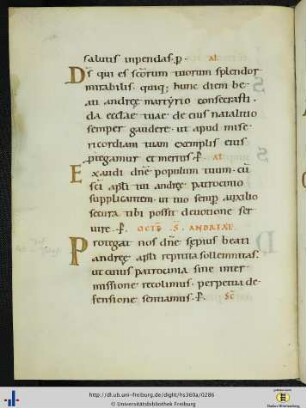 salutis inpendas. p. al
Ds qui es scōrum tuorum splendor
mirabilis. quiq; hunc diem be-
ati andreę martyrio consecrasti.
da ecclae tuae de eius natalitio
semper gaudere. ut apud mise-
ricordiam tuam exemplis eius
ptegamur et meritis. P. Al
Exaudi dn̄e populum tuum. cū
sc̄i apl̄i tui andreę patrocinio
supplicantem. ut tuo semp auxilio
secura tibi possit deuotione ser-
uire. P. OCTB S. ANDREAE
Protegat nos dn̄e sępius beati
andreę apl̄i repetita sollemnitas.
ut cuius patrocinia sine inter-
missione recolimus. perpetua de-
fensione sentiamus. P. SC
http://dl.ub.uni-freiburg.de/diglit/hs360a/0286
© Universitätsbibliothek Freiburg